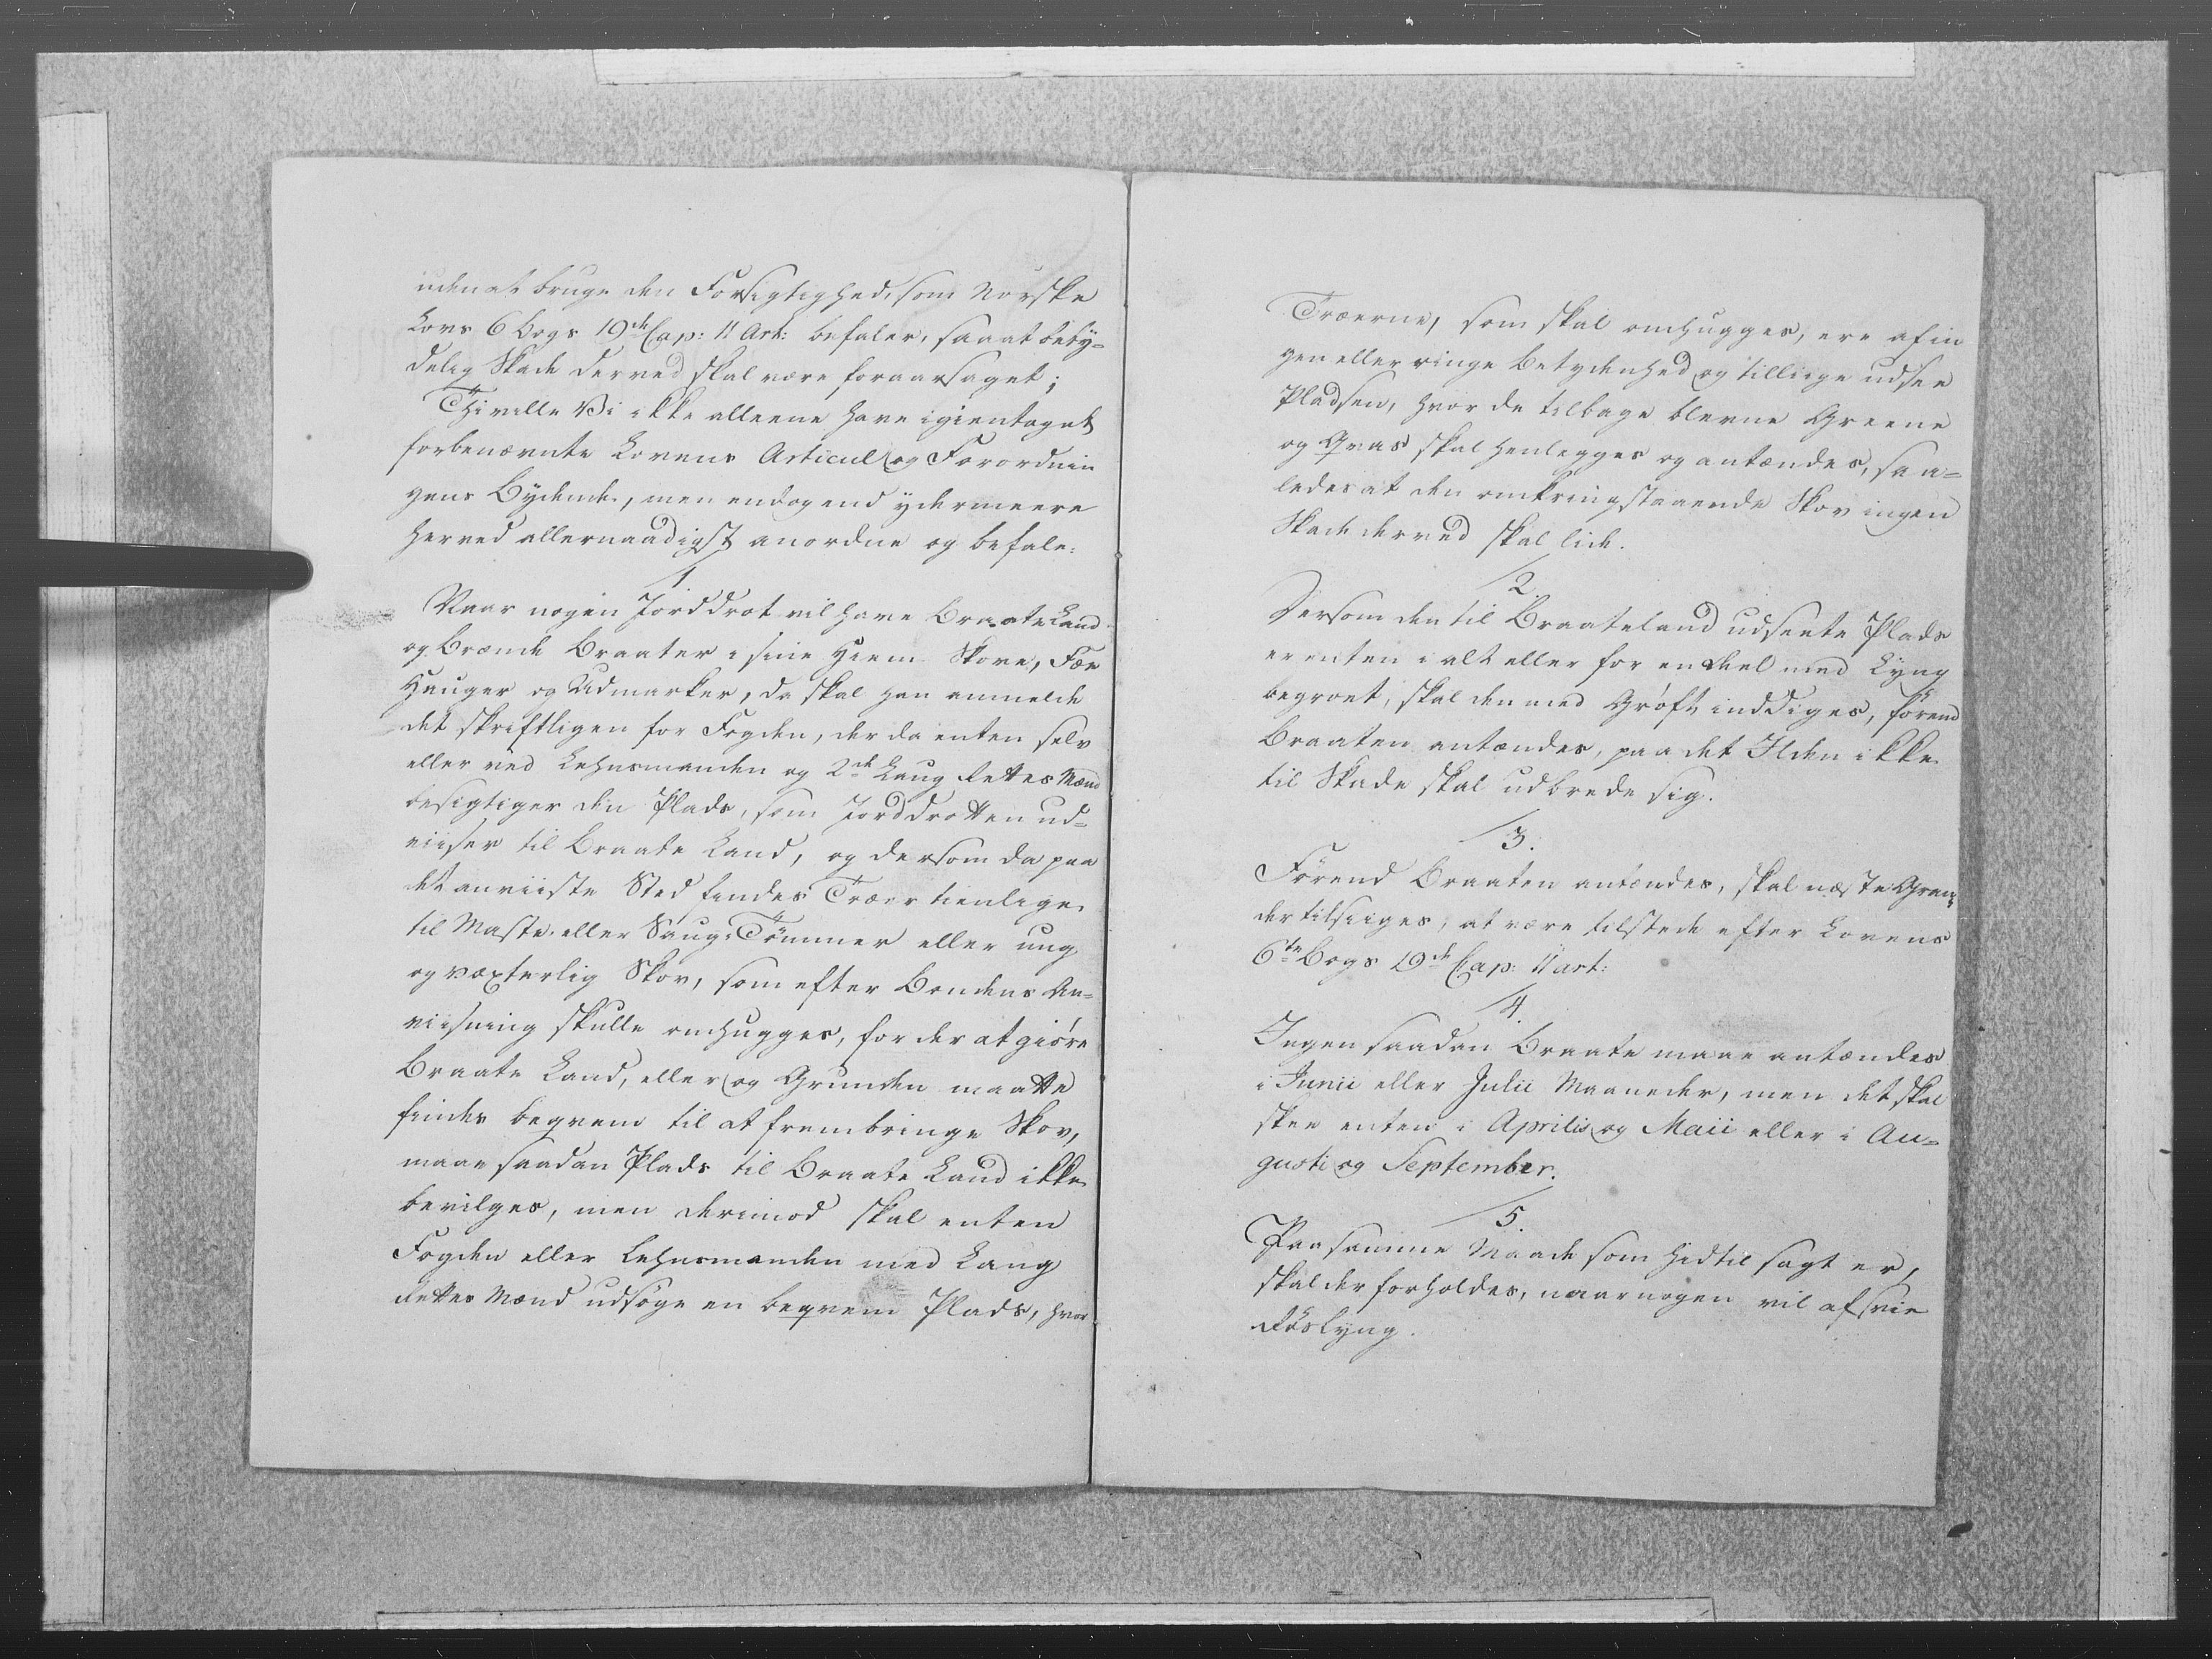 uden at bruge den Forsigtighed, som Norske
Lovs 6 Bogs 19de Cap: 11 Art: befaler, saa at bety=
delig Skade derved skal være foraarsaget;
Thi ville Vi ikke alleene have igientaget
forbenævnte Lovens Articul og Forordnin
gens Bydende, men endog end ydermeere
herved allernaadigst anordne og befale:
1.
Naar nogen Jorddrot vil have Braate Land
og brænde Braater i sine Hiem Skove, Fæe
Hauger og Udmarker, da skal han anmelde
det skriftligen for Fogden, der da enten selv
eller ved Lehnsmanden og 2de Laug Rettes Mænd
besigtiger den Plads, som Jorddrotten ud=
viiser til Braate Land, og dersom da paa
det anviiste Sted findes Træer tienlige
til Maste- eller Saug-Tømmer eller ung
og voxterlig Skov, som efter Bondens An=
viisning skulle omhugges, for der at giöre
Braate Land, eller og Grunden maatte
findes beqvem til at frembringe Skov,
maae saadan Plads til Braate Land ikke
bevilges, men derimod skal enten
Fogden eller Lehnsmanden med Laug
Rettes Mænd udsøge en beqvem Plads, hvor
Træerne, som skal omhugges, ere af in
gen eller ringe Betydenhed og tillige udsee
Pladsen, hvor de tilbage blevne Greene
og Qvas skal henlegges og antændes, saa=
ledes at den omkringstaaende Skov ingen
Skade derved skal lide.
2.
Dersom den til Braateland udseete Plads
er enten i alt eller for en deel med Lyng
begroet, skal den med Grøft inddiges, förend
Braaten antændes, paa det Ilden ikke
til Skade skal udbrede sig.
3.
Förend Braaten antændes, skal næste Gran
der tilsiiges, at være tilstede efter Lovens
6te Bogs 19de Cap: 11 art:
4.
Ingen saadan Braate maae antændes
i Junii eller Julii Maaneder, men det skal
skee enten i Aprilis og Maii eller i Au=
gusti og September.
5.
Paa samme Maade som hidtil sagt er,
skal der forholdes, naar nogen vil afsvie
Röslyng.